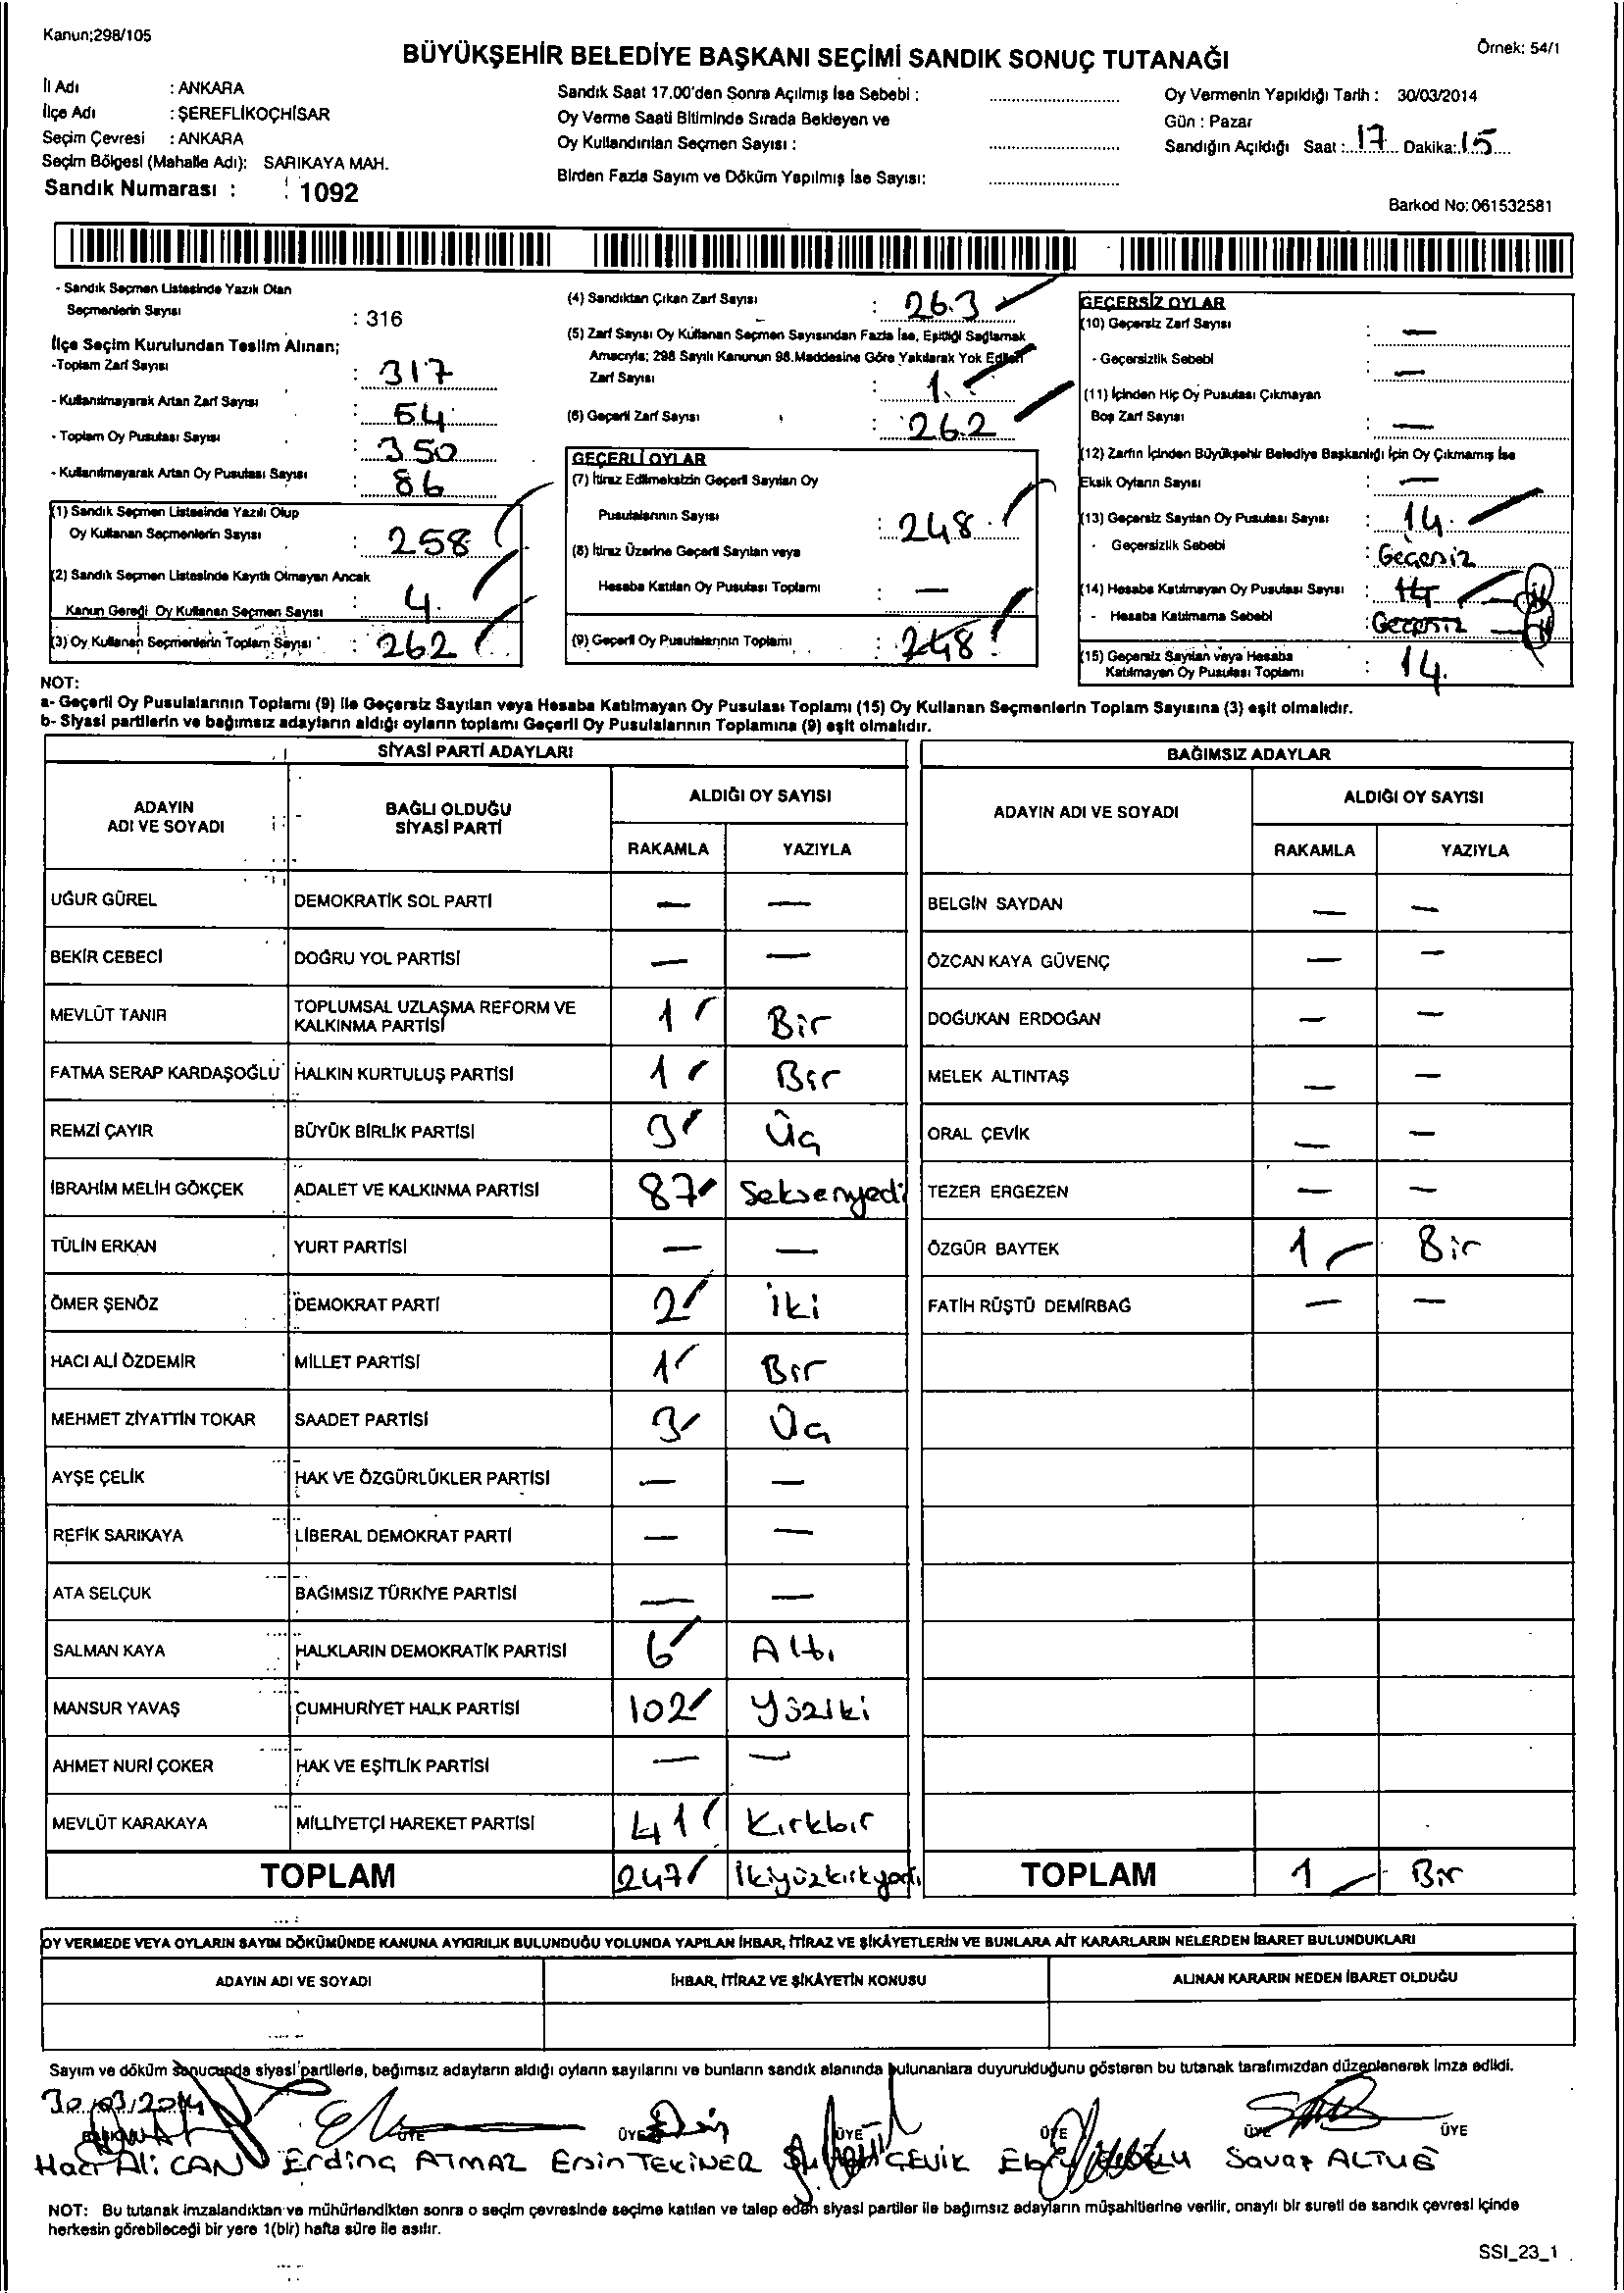 Kanun;298/105
BÜYÜKŞEHİR BELEDİYE BAŞKANI SEÇİMİ SANDIK SONUÇ TUTANAĞI
Örnek: 54/1
İl Adı : ANKARA
İlçe Adı : ŞEREFLİKOÇHİSAR
Seçim Çevresi : ANKARA
Seçim Bölgesi (Mahalle Adı): SARIKAYA MAH.
Sandık Numarası : 1092
Sandık Saat 17.00'den Sonra Açılmış İse Sebebi :
Oy Verme Saati Bitiminde Sırada Bekleyen ve
Oy Kullandırılan Seçmen Sayısı :
Birden Fazla Sayım ve Döküm Yapılmış İse Sayısı:
Oy Vermenin Yapıldığı Tarih : 30/03/2014
Gün : Pazar
Sandığın Açıldığı Saat : 17 Dakika: 15
Barkod No: 061532581
- Sandık Seçmen Listesinde Yazılı Olan
Seçmenlerin Sayısı : 316
İlçe Seçim Kurulundan Teslim Alınan;
-Toplam Zarf Sayısı : 317
- Kullanılmayarak Artan Zarf Sayısı : 54
- Toplam Oy Pusulası Sayısı : 350
- Kullanılmayarak Artan Oy Pusulası Sayısı : 86
(1) Sandık Seçmen Listesinde Yazılı Olup
Oy Kullanan Seçmenlerin Sayısı : 258
(2) Sandık Seçmen Listesinde Kayıtlı Olmayan Ancak
Kanun Gereği Oy Kullanan Seçmen Sayısı : 4
(3) Oy Kullanan Seçmenlerin Toplam Sayısı : 262
(4) Sandıktan Çıkan Zarf Sayısı : 263
(5) Zarf Sayısı Oy Kullanan Seçmen Sayısından Fazla İse, Eşitliği Sağlamak
Amacıyla; 298 Sayılı Kanunun 98.Maddesine Göre Yakılarak Yok Edilen
Zarf Sayısı : 1
(6) Geçerli Zarf Sayısı : 262
GEÇERLİ OYLAR
(7) İtiraz Edilmeksizin Geçerli Sayılan Oy
Pusulalarının Sayısı : 248
(8) İtiraz Üzerine Geçerli Sayılan veya
Hesaba Katılan Oy Pusulası Toplamı : —
(9) Geçerli Oy Pusulalarının Toplamı : 248
GEÇERSİZ OYLAR
(10) Geçersiz Zarf Sayısı : —
- Geçersizlik Sebebi : —
(11) İçinden Hiç Oy Pusulası Çıkmayan
Boş Zarf Sayısı : —
(12) Zarfın İçinden Büyükşehir Belediye Başkanlığı İçin Oy Çıkmamış İse
Eksik Oyların Sayısı : —
(13) Geçersiz Sayılan Oy Pusulası Sayısı : 14
- Geçersizlik Sebebi : Geçersiz
(14) Hesaba Katılmayan Oy Pusulası Sayısı : 14
- Hesaba Katılmama Sebebi : Geçersiz
(15) Geçersiz Sayılan veya Hesaba
Katılmayan Oy Pusulası Toplamı : 14
NOT:
a- Geçerli Oy Pusulalarının Toplamı (9) ile Geçersiz Sayılan veya Hesaba Katılmayan Oy Pusulası Toplamı (15) Oy Kullanan Seçmenlerin Toplam Sayısına (3) eşit olmalıdır.
b- Siyasi partilerin ve bağımsız adayların aldığı oyların toplamı Geçerli Oy Pusulalarının Toplamına (9) eşit olmalıdır.
SİYASİ PARTİ ADAYLARI
ADAYIN ADI VE SOYADI BAĞLI OLDUĞU SİYASİ PARTİ ALDIĞI OY SAYISI
RAKAMLA YAZIYLA
UĞUR GÜREL DEMOKRATİK SOL PARTİ — —
BEKİR CEBECİ DOĞRU YOL PARTİSİ — —
MEVLÜT TANIR TOPLUMSAL UZLAŞMA REFORM VE KALKINMA PARTİSİ 1 Bir
FATMA SERAP KARDAŞOĞLU HALKIN KURTULUŞ PARTİSİ 1 Bir
REMZİ ÇAYIR BÜYÜK BİRLİK PARTİSİ 3 Üç
İBRAHİM MELİH GÖKÇEK ADALET VE KALKINMA PARTİSİ 87 Seksenyedi
TÜLİN ERKAN YURT PARTİSİ — —
ÖMER ŞENÖZ DEMOKRAT PARTİ 2 iki
HACI ALİ ÖZDEMİR MİLLET PARTİSİ 1 Bir
MEHMET ZİYATTİN TOKAR SAADET PARTİSİ 3 Üç
AYŞE ÇELİK HAK VE ÖZGÜRLÜKLER PARTİSİ — —
REFİK SARIKAYA LİBERAL DEMOKRAT PARTİ — —
ATA SELÇUK BAĞIMSIZ TÜRKİYE PARTİSİ — —
SALMAN KAYA HALKLARIN DEMOKRATİK PARTİSİ 6 Altı
MANSUR YAVAŞ CUMHURİYET HALK PARTİSİ 102 Yüziki
AHMET NURİ ÇOKER HAK VE EŞİTLİK PARTİSİ — —
MEVLÜT KARAKAYA MİLLİYETÇİ HAREKET PARTİSİ 41 Kırkbir
TOPLAM 247 İkiyüzkırkyedi
BAĞIMSIZ ADAYLAR
ADAYIN ADI VE SOYADI ALDIĞI OY SAYISI
RAKAMLA YAZIYLA
BELGİN SAYDAN — —
ÖZCAN KAYA GÜVENÇ — —
DOĞUKAN ERDOĞAN — —
MELEK ALTINTAŞ — —
ORAL ÇEVİK — —
TEZER ERGEZEN — —
ÖZGÜR BAYTEK 1 Bir
FATİH RÜŞTÜ DEMİRBAĞ — —
TOPLAM 1 Bir
OY VERMEDE VEYA OYLARIN SAYIM DÖKÜMÜNDE KANUNA AYKIRILIK BULUNDUĞU YOLUNDA YAPILAN İHBAR, İTİRAZ VE ŞİKÂYETLERİN VE BUNLARA AİT KARARLARIN NELERDEN İBARET BULUNDUKLARI
ADAYIN ADI VE SOYADI İHBAR, İTİRAZ VE ŞİKÂYETİN KONUSU ALINAN KARARIN NEDEN İBARET OLDUĞU
Sayım ve döküm sonucunda siyasi partilerle, bağımsız adayların aldığı oyların sayılarını ve bunların sandık alanında bulunanlara duyurulduğunu gösteren bu tutanak tarafımızdan düzenlenerek imza edildi.
30/03/2014
BAŞKAN ÜYE ÜYE ÜYE ÜYE ÜYE ÜYE
Hacı Ali CAN Erdinç ATMAZ Ersin TEKİNER ÇEVİK Savaş ALTUĞ
NOT: Bu tutanak imzalandıktan ve mühürlendikten sonra o seçim çevresinde seçime katılan ve talep eden siyasi partiler ile bağımsız adayların müşahitlerine verilir, onaylı bir sureti de sandık çevresi içinde
herkesin görebileceği bir yere 1(bir) hafta süre ile asılır.
SSI_23_1